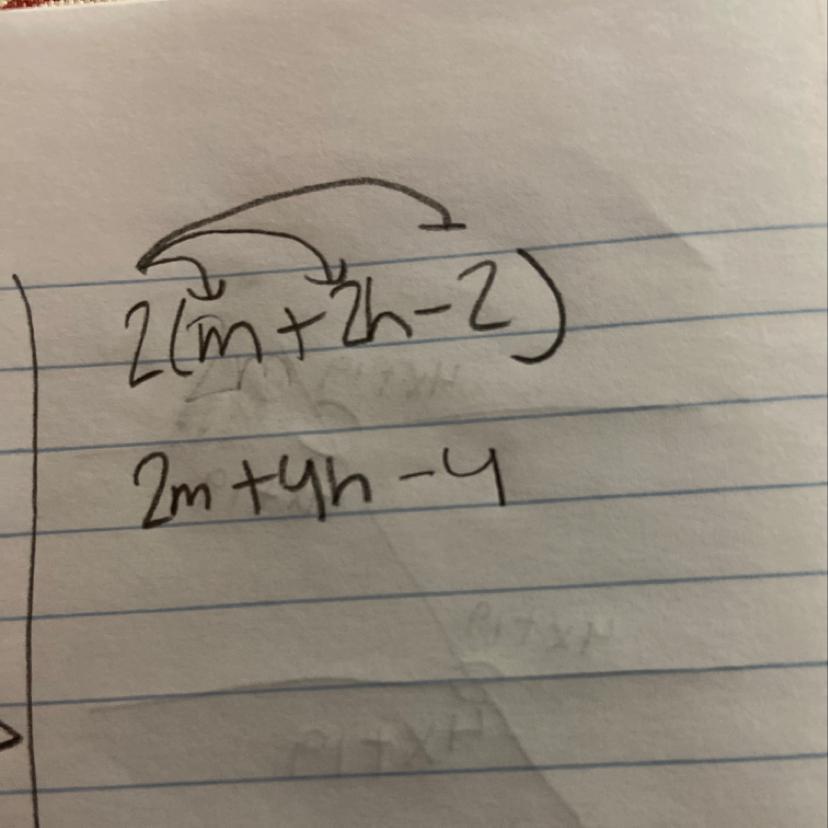 2(m+2h-2)
2m+4h-4